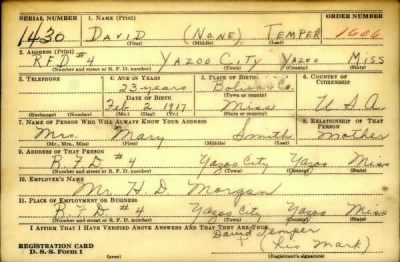 SERIAL NUMBER 1. NAME (Print) ORDER NUMBER
1430 DAVID (NONE) TEMPER 1606
(First) (Middle) (Last)
2. ADDRESS (Print)
RFD #4 YAZOO CITY YAZOO MISS
(Number and street or R. F. D. number) (Town) (County) (State)
3. TELEPHONE 4. AGE IN YEARS 5. PLACE OF BIRTH 6. COUNTRY OF CITIZENSHIP
23 years Bolivar Co.
DATE OF BIRTH (Town or county)
Feb 2 1917 Miss U.S.A.
(Exchange) (Number) (Mo.) (Day) (Yr.) (State or country)
7. NAME OF PERSON WHO WILL ALWAYS KNOW YOUR ADDRESS 8. RELATIONSHIP OF THAT PERSON
Mrs. Mary Smith Mother
(Mr., Mrs., Miss) (First) (Middle) (Last)
9. ADDRESS OF THAT PERSON
RFD #4 Yazoo City Yazoo Miss
(Number and street or R. F. D. number) (Town) (County) (State)
10. EMPLOYER'S NAME
Mr H. D. Morgan
11. PLACE OF EMPLOYMENT OR BUSINESS
RFD #4 Yazoo City Yazoo Miss
(Number and street or R. F. D. number) (Town) (County) (State)
I AFFIRM THAT I HAVE VERIFIED ABOVE ANSWERS AND THAT THEY ARE TRUE.
David Temper
REGISTRATION CARD (his Mark)
D. S. S. Form 1 (over) (Registrant's signature)